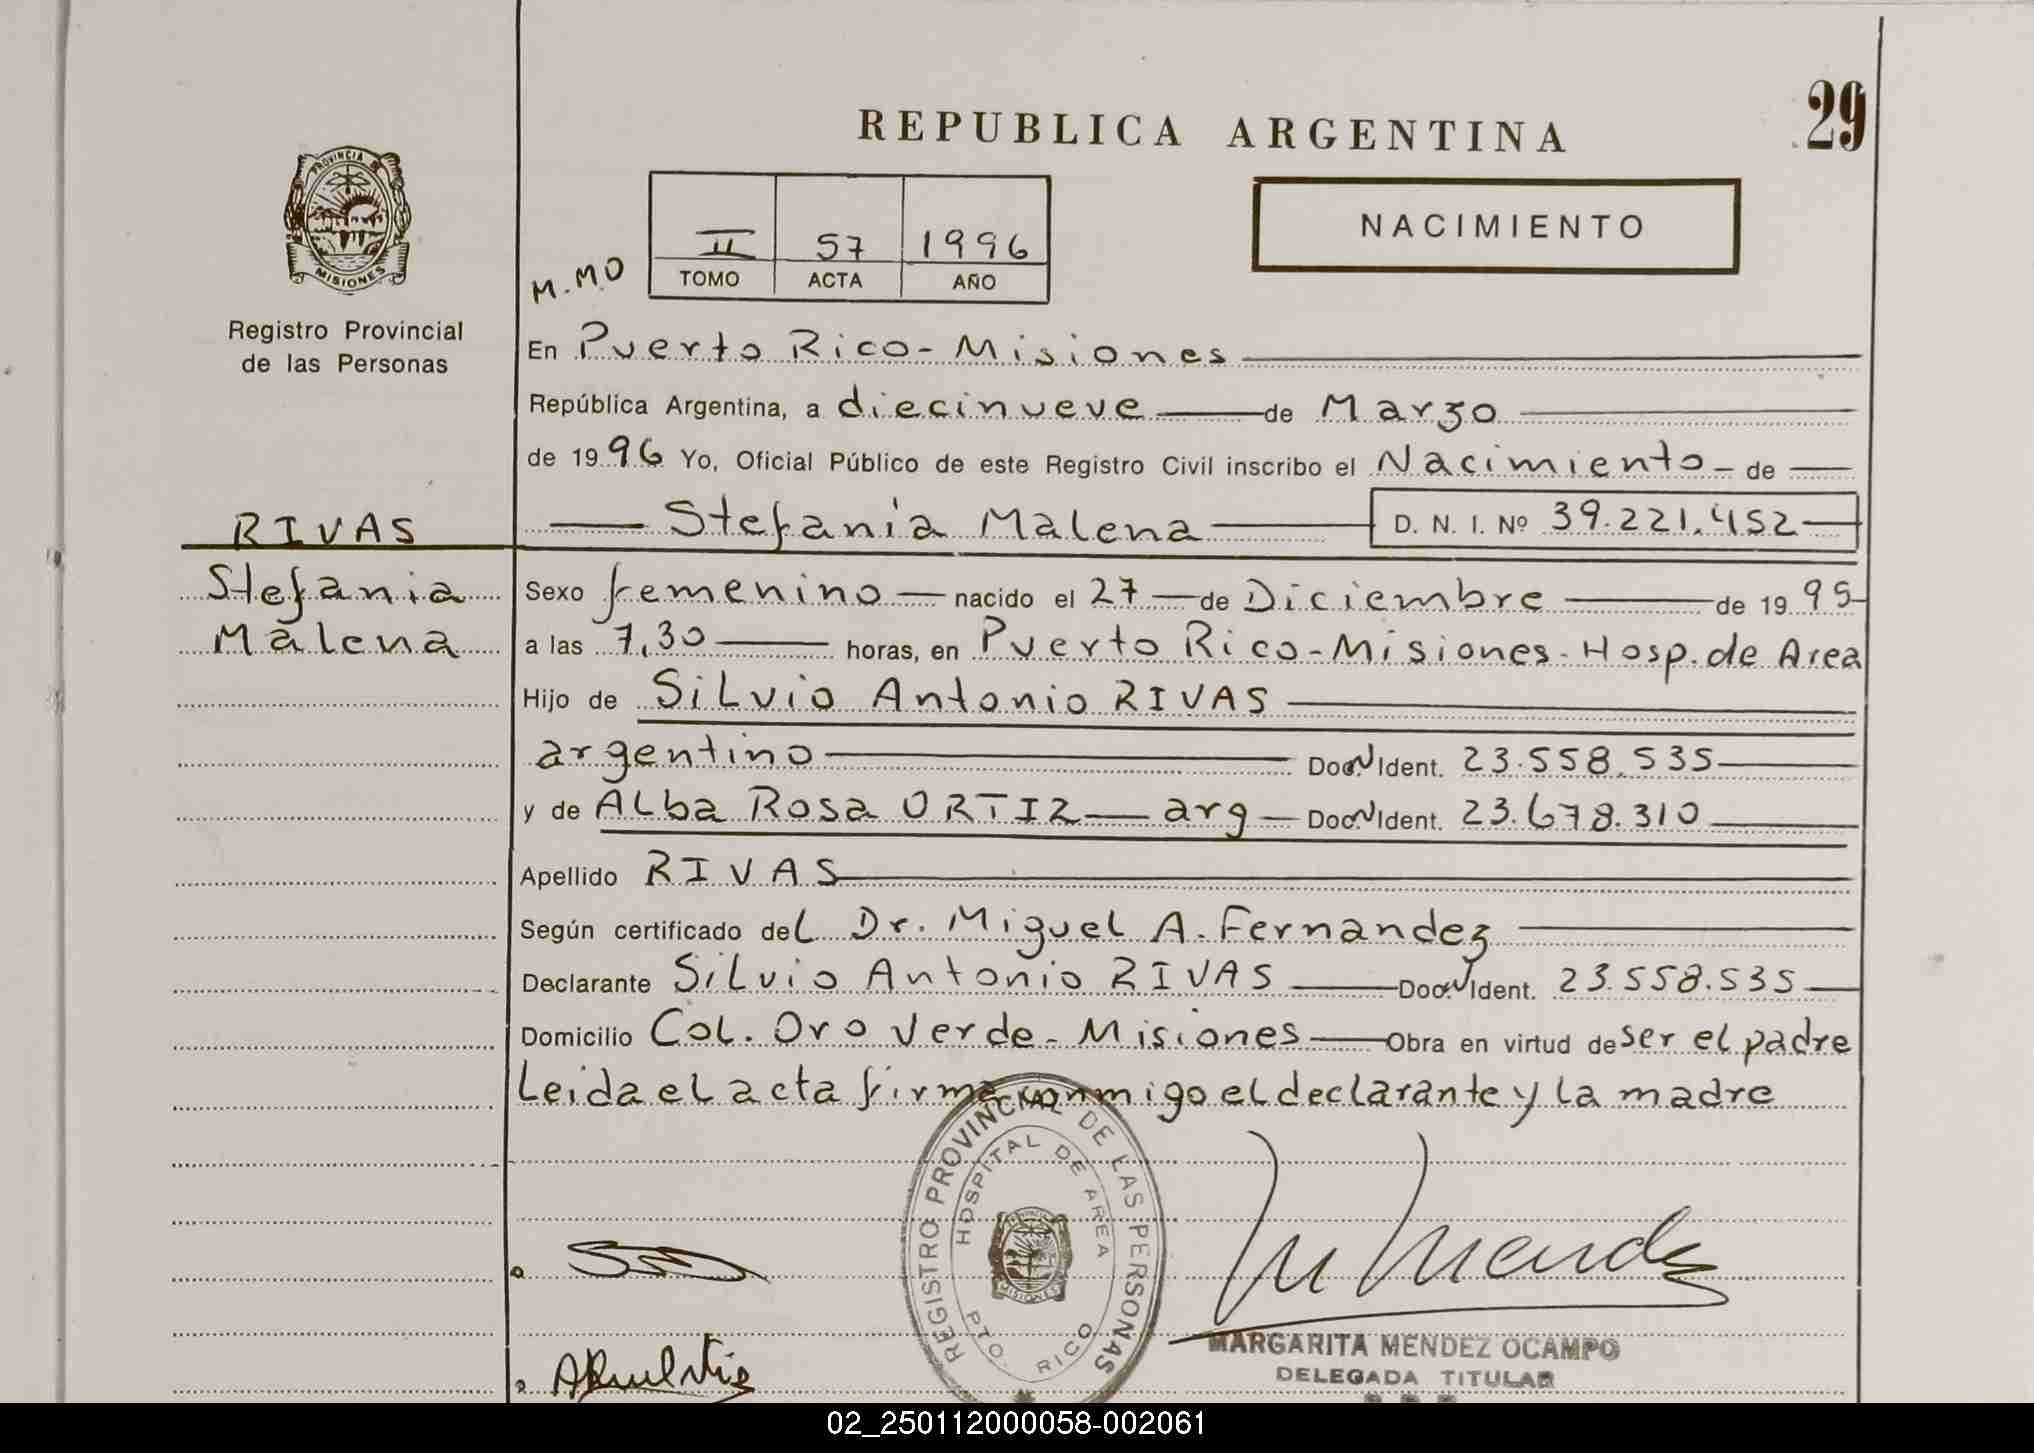 29
REPUBLICA ARGENTINA
PROVINCIA DE
MISIONES
Registro Provincial
de las Personas
NACIMIENTO
II 57 1996
TOMO ACTA AÑO
M.MO
En Puerto Rico-Misiones
República Argentina, a diecinueve de Marzo
de 1996 Yo, Oficial Público de este Registro Civil inscribo el Nacimiento de
Stefania Malena D. N. I. Nº 39.221.452
RIVAS
Stefania
Malena
Sexo femenino nacido el 27 de Diciembre de 1995
a las 7,30 horas, en Puerto Rico-Misiones-Hosp. de Area
Hijo de Silvio Antonio RIVAS
argentino Doc.N Ident. 23.558.535
y de Alba Rosa ORTIZ arg Doc.N Ident. 23.678.310
Apellido RIVAS
Según certificado del Dr. Miguel A. Fernandez
Declarante Silvio Antonio RIVAS Doc.N Ident. 23.558.535
Domicilio Col. Oro Verde-Misiones Obra en virtud de ser el padre
Leida el acta firma conmigo el declarante y la madre
REGISTRO PROVINCIAL DE LAS PERSONAS
HOSPITAL DE AREA
MISIONES
PTO. RICO
M Mendez
MARGARITA MENDEZ OCAMPO
DELEGADA TITULAR
02_250112000058-002061